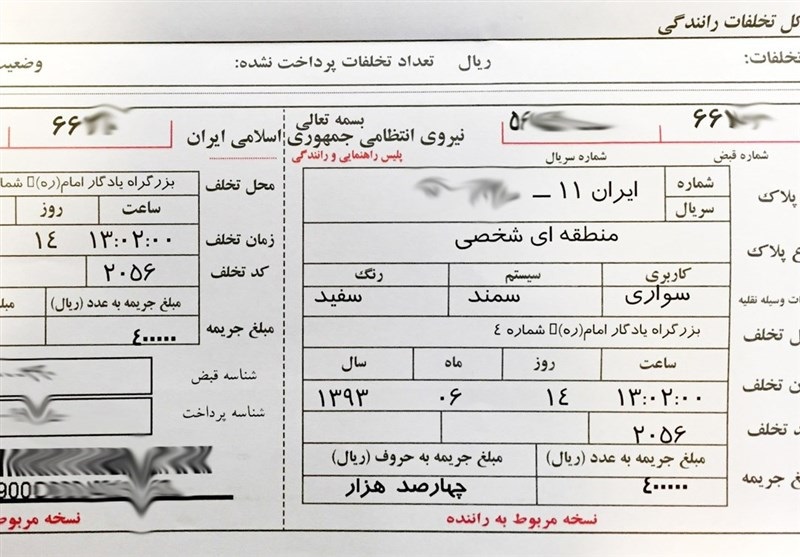 کل تخلفات رانندگی
تخلفات: ریال تعداد تخلفات پرداخت نشده: وضعیت
بسمه تعالی
نیروی انتظامی جمهوری اسلامی ایران
پلیس راهنمایی و رانندگی
۶۶
شماره قبض شماره سریال
پلاک
شماره سریال
ایران ۱۱ ـ
ع پلاک
منطقه ای شخصی
کاربری سیستم رنگ
ات وسیله نقلیه
سواری سمند سفید
ل تخلف
بزرگراه یادگار امام(ره)▯ شماره ٤
ساعت روز ماه سال
ن تخلف
۱۳:۰۲:۰۰ ۱٤ ۰۶ ۱۳۹۳
د تخلف
۲۰۵۶
مبلغ جریمه به عدد (ریال) مبلغ جریمه به حروف (ریال)
غ جریمه
٤۰۰۰۰۰ چهارصد هزار
نسخه مربوط به راننده
۶۶
محل تخلف
بزرگراه یادگار امام(ره)▯ شما
ساعت روز
زمان تخلف
۱۳:۰۲:۰۰ ۱٤
کد تخلف
۲۰۵۶
مبلغ جریمه به عدد (ریال) مبل
مبلغ جریمه
٤۰۰۰۰۰
شناسه قبض
شناسه پرداخت
900
نسخه مربوط